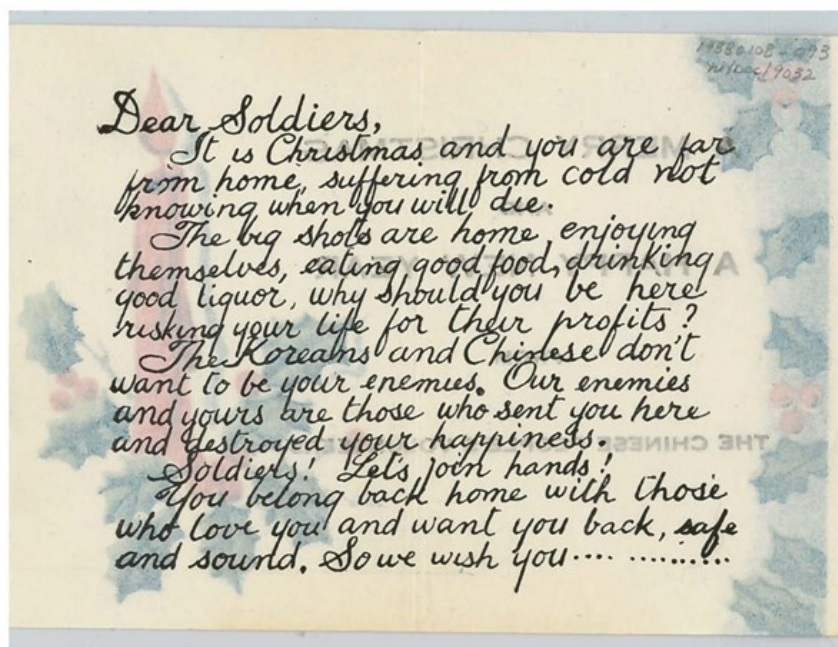 Dear Soldiers,
It is Christmas and you are far
from home, suffering from cold not
knowing when you will die.
The big shots are home, enjoying
themselves, eating good food, drinking
good liquor, why should you be here
risking your life for their profits?
The Koreans and Chinese don't
want to be your enemies. Our enemies
and yours are those who sent you here
and destroyed your happiness.
Soldiers! Let's join hands!
You belong back home with those
who love you and want you back, safe
and sound. So we wish you.... .........